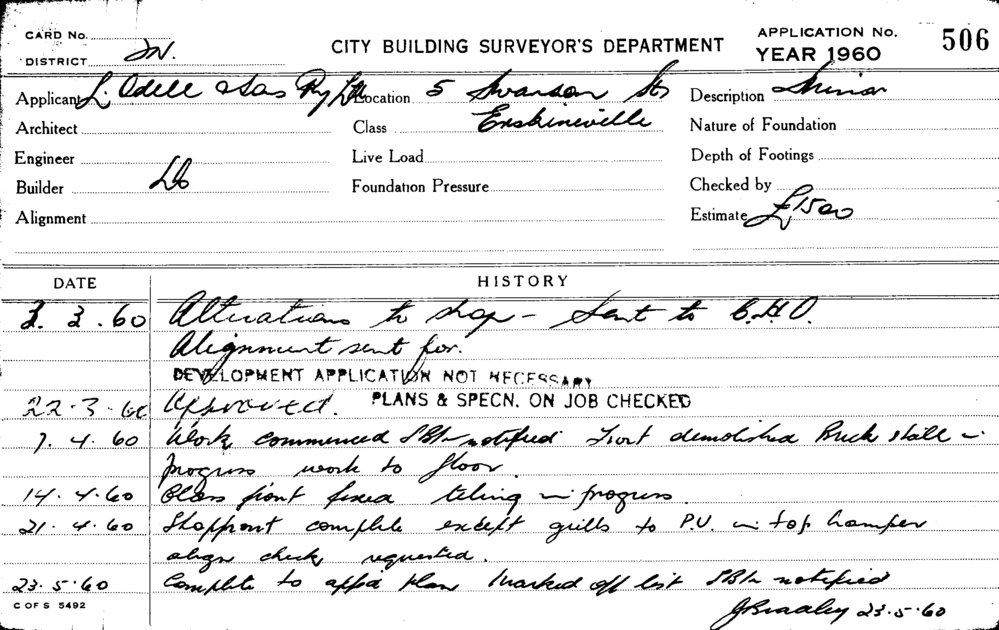 CARD No.
DISTRICT
CITY BUILDING SURVEYOR'S DEPARTMENT
APPLICATION No. 506
YEAR 1960
Applicant L. Odell & Sas Pty Ltd Location 5 Swanson St Description Minor
Architect Class Erskineville Nature of Foundation
Engineer Live Load Depth of Footings
Builder Foundation Pressure Checked by
Alignment Estimate £1500
DATE HISTORY
3. 3. 60 Alterations to shop - Sent to C.H.O.
Alignment sent for.
DEVELOPMENT APPLICATION NOT NECESSARY
22.3.60 Approved. PLANS & SPECN. ON JOB CHECKED
7. 4. 60 Work commenced notified Front demolished Brick stall in
progress work to floor.
14. 4. 60 Glass front fixed tiling in progress.
21. 4. 60 Shopfront complete except grills to P.V. in top hamper
align check requested.
23. 5. 60 Complete to appd plan marked off list notified
C OF S 5492
JBradley 23.5.60